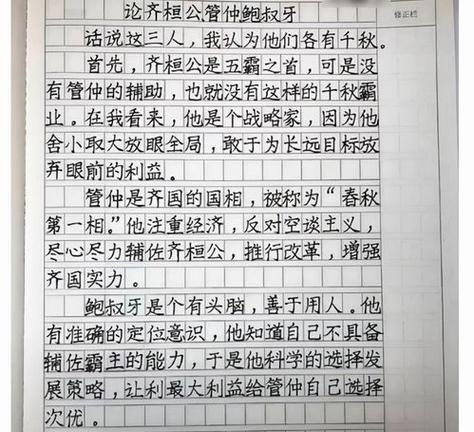 论齐桓公管仲鲍叔牙
修正栏
话说这三人，我认为他们各有千秋。
首先，齐桓公是五霸之首，可是没
有管仲的辅助，也就没有这样的千秋霸
业。在我看来，他是个战略家，因为他
舍小取大放眼全局，敢于为长远目标放
弃眼前的利益。
管仲是齐国的国相，被称为“春秋
第一相。”他注重经济，反对空谈主义，
尽心尽力辅佐齐桓公，推行改革，增强
齐国实力。
鲍叔牙是个有头脑，善于用人。他
有准确的定位意识，他知道自己不具备
辅佐霸主的能力，于是他科学的选择发
展策略，让利最大利益给管仲自己选择
次优。